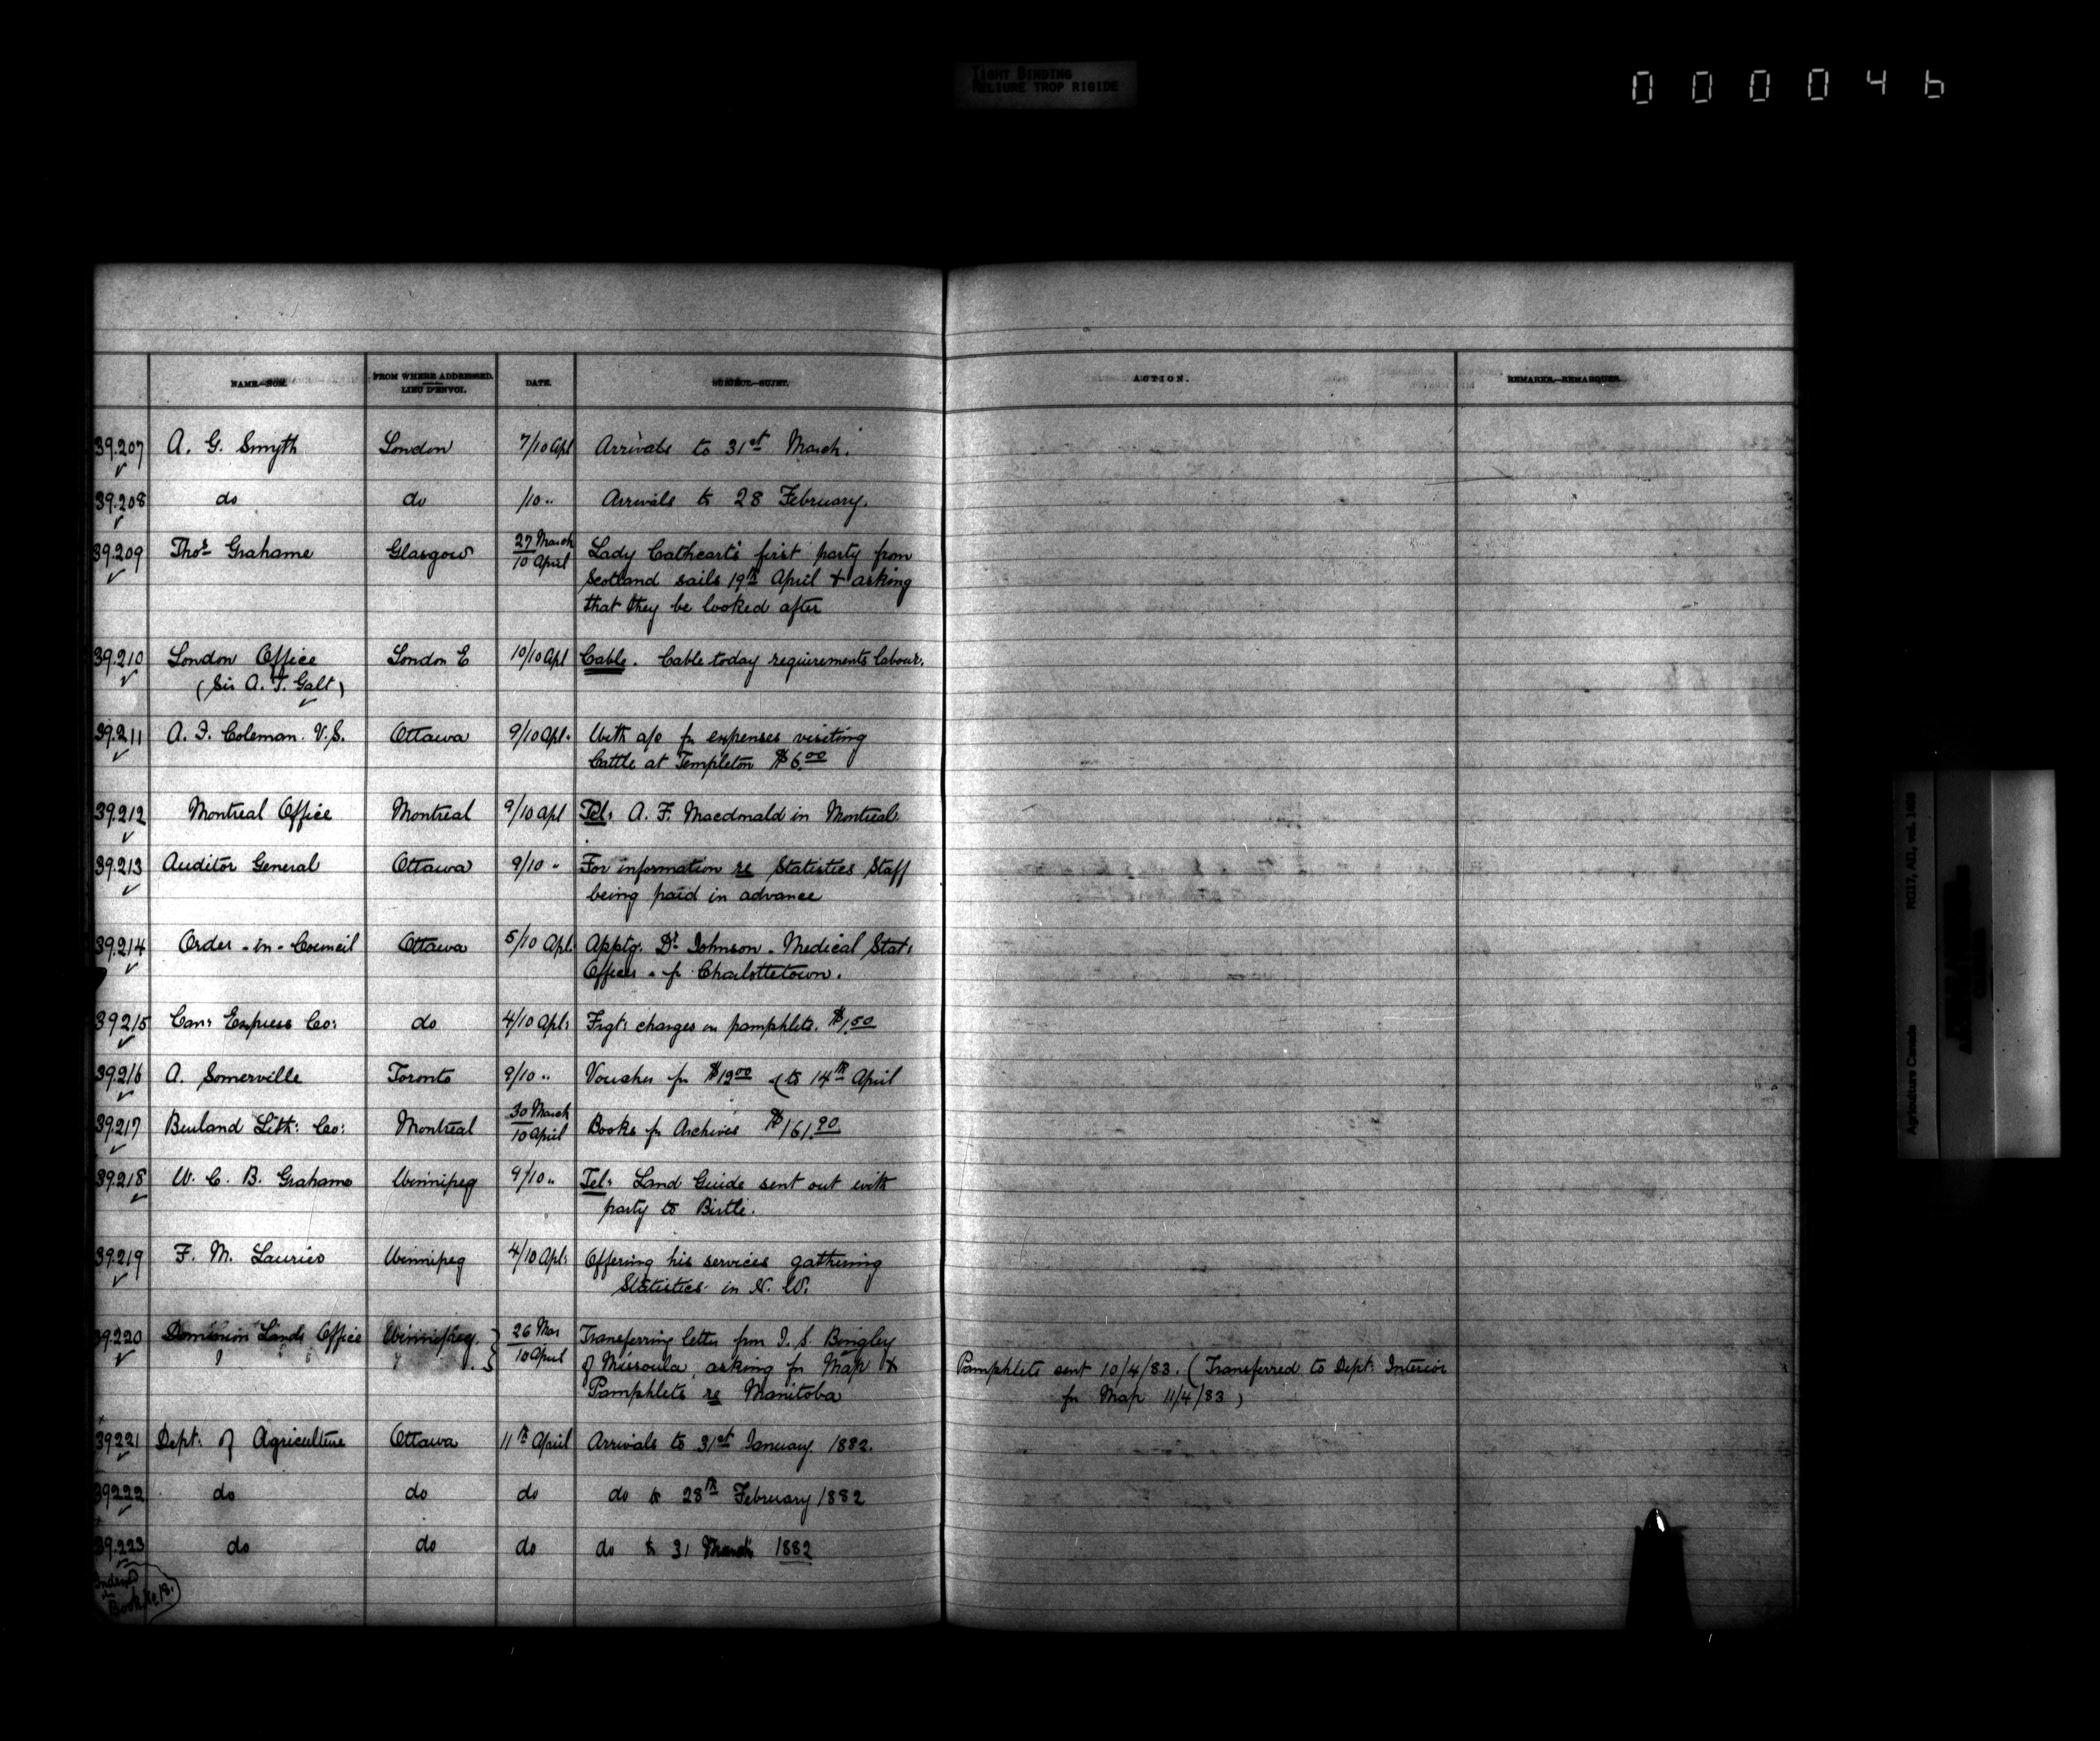 TIGHT BINDING
RELIURE TROP RIGIDE
000046
NAME.—NOM. FROM WHERE ADDRESSED. LIEU D'ENVOI. DATE. SUBJECT.—SUJET. ACTION. REMARKS.—REMARQUES.
39.207 A. G. Smyth London 7/10 Apl Arrivals to 31st March.
39.208 do do /10 " Arrivals to 28 February.
39.209 Thos Grahame Glasgow 27 March Lady Cathcart's first party from
10 April Scotland sails 19th April & asking
that they be looked after
39.210 London Office London E 10/10 Apl Cable. Cable today requirements labour.
(Sir A. T. Galt)
39.211 A. F. Coleman. V.S. Ottawa 9/10 Apl. With a/c fr expenses visiting
Cattle at Templeton $6.00
39.212 Montreal Office Montreal 9/10 Apl Tel: A. F. Macdonald in Montreal
39.213 Auditor General Ottawa 9/10 " For information re Statistics Staff
being paid in advance
39.214 Order-in-Council Ottawa 5/10 Apl. Apptg. Dr Johnson - Medical Stat:
Officer - fr Charlottetown.
39215 Can: Express Co: do 4/10 Apl: Frgt: charges on pamphlets. $1.50
39.216 A. Somerville Toronto 9/10 " Voucher fr $19.00 (to 14th April
39.217 Burland Lith: Co: Montreal 30 March Books fr Archives $161.90
10 April
39.218 W. C. B. Grahame Winnipeg 9/10 " Tel: Land Guide sent out with
party to Birtle.
39.219 F. M. Laurie Winnipeg 4/10 Apl: Offering his services gathering
Statistics in N. W.
39.220 Dominion Lands Office Winnipeg. 26 Mar Transferring letter from I. S. Bingley
10 April of Missoula, asking fr Map & Pamphlets sent 10/4/83. (Transferred to Dept: Interior
Pamphlets re Manitoba fr Map 11/4/83)
39221 Dept: of Agriculture Ottawa 11th April Arrivals to 31st January 1882.
39222 do do do do to 28th February 1882
39.223 do do do do to 31 March 1882
Indexed
in
Book No 18.
Agriculture Canada RG17, AII, vol.